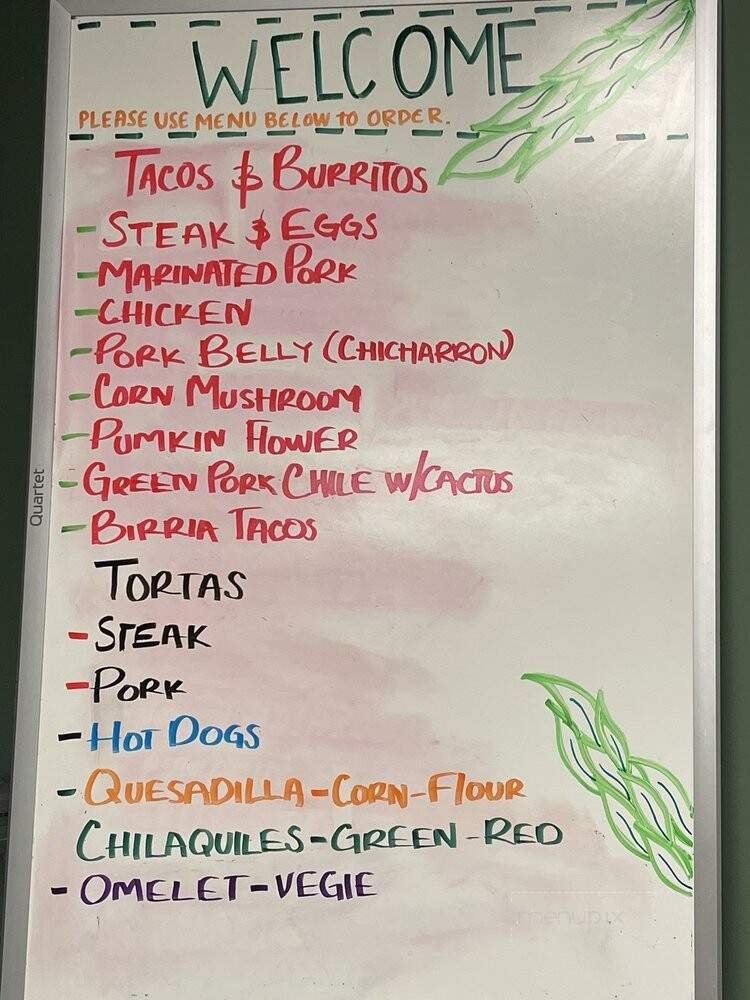 WELCOME
PLEASE USE MENU BELOW TO ORDER.
TACOS & BURRITOS
- STEAK & EGGS
- MARINATED PORK
- CHICKEN
- PORK BELLY (CHICHARRON)
- CORN MUSHROOM
- PUMKIN FLOWER
- GREEN PORK CHILE W/CACTUS
- BIRRIA TACOS
TORTAS
- STEAK
- PORK
- HOT DOGS
- QUESADILLA-CORN-FLOUR
CHILAQUILES-GREEN-RED
- OMELET-VEGIE
Quartet
menupix